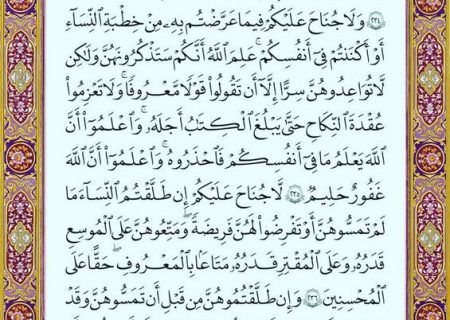 ٢٣٤ وَلَا جُنَاحَ عَلَيْكُمْ فِيمَا عَرَّضْتُم بِهِۦ مِنْ خِطْبَةِ ٱلنِّسَآءِ
أَوْ أَكْنَنتُمْ فِىٓ أَنفُسِكُمْ ۚ عَلِمَ ٱللَّهُ أَنَّكُمْ سَتَذْكُرُونَهُنَّ وَلَٰكِن
لَّا تُوَاعِدُوهُنَّ سِرًّا إِلَّآ أَن تَقُولُوا۟ قَوْلًا مَّعْرُوفًا ۚ وَلَا تَعْزِمُوا۟
عُقْدَةَ ٱلنِّكَاحِ حَتَّىٰ يَبْلُغَ ٱلْكِتَٰبُ أَجَلَهُۥ ۚ وَٱعْلَمُوٓا۟ أَنَّ
ٱللَّهَ يَعْلَمُ مَا فِىٓ أَنفُسِكُمْ فَٱحْذَرُوهُ ۚ وَٱعْلَمُوٓا۟ أَنَّ ٱللَّهَ
غَفُورٌ حَلِيمٌ ٢٣٥ لَّا جُنَاحَ عَلَيْكُمْ إِن طَلَّقْتُمُ ٱلنِّسَآءَ مَا
لَمْ تَمَسُّوهُنَّ أَوْ تَفْرِضُوا۟ لَهُنَّ فَرِيضَةً ۚ وَمَتِّعُوهُنَّ عَلَى ٱلْمُوسِعِ
قَدَرُهُۥ وَعَلَى ٱلْمُقْتِرِ قَدَرُهُۥ مَتَٰعًۢا بِٱلْمَعْرُوفِ ۖ حَقًّا عَلَى
ٱلْمُحْسِنِينَ ٢٣٦ وَإِن طَلَّقْتُمُوهُنَّ مِن قَبْلِ أَن تَمَسُّوهُنَّ وَقَدْ